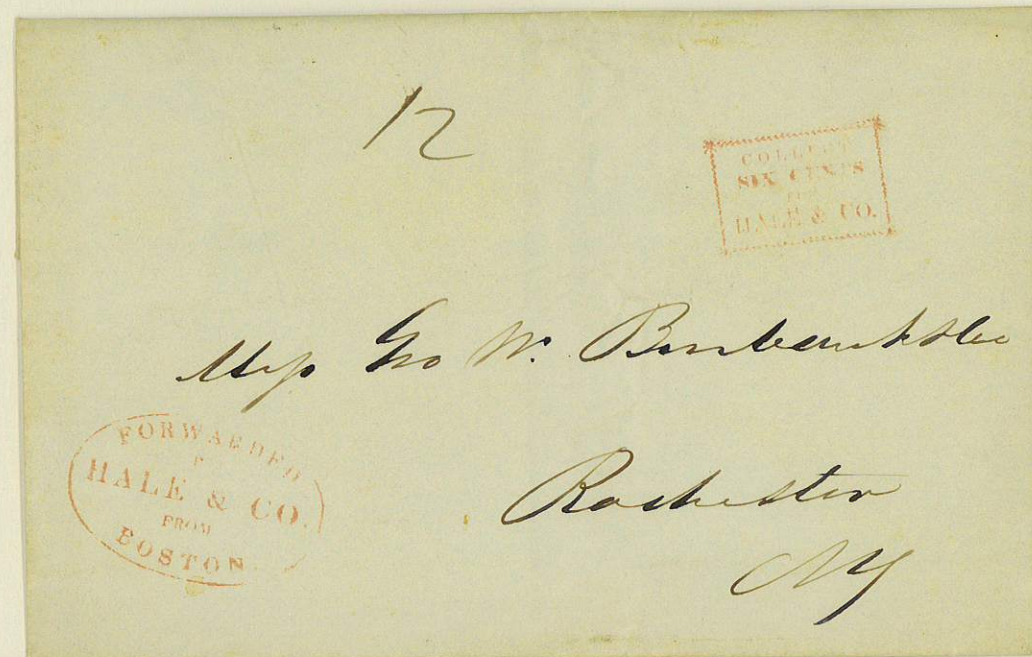 12
COLLECT
SIX CENTS
FOR
HALE & CO.
Geo W. Burbank &
Rochester
NY
FORWARDED
HALE & CO.
FROM
BOSTON